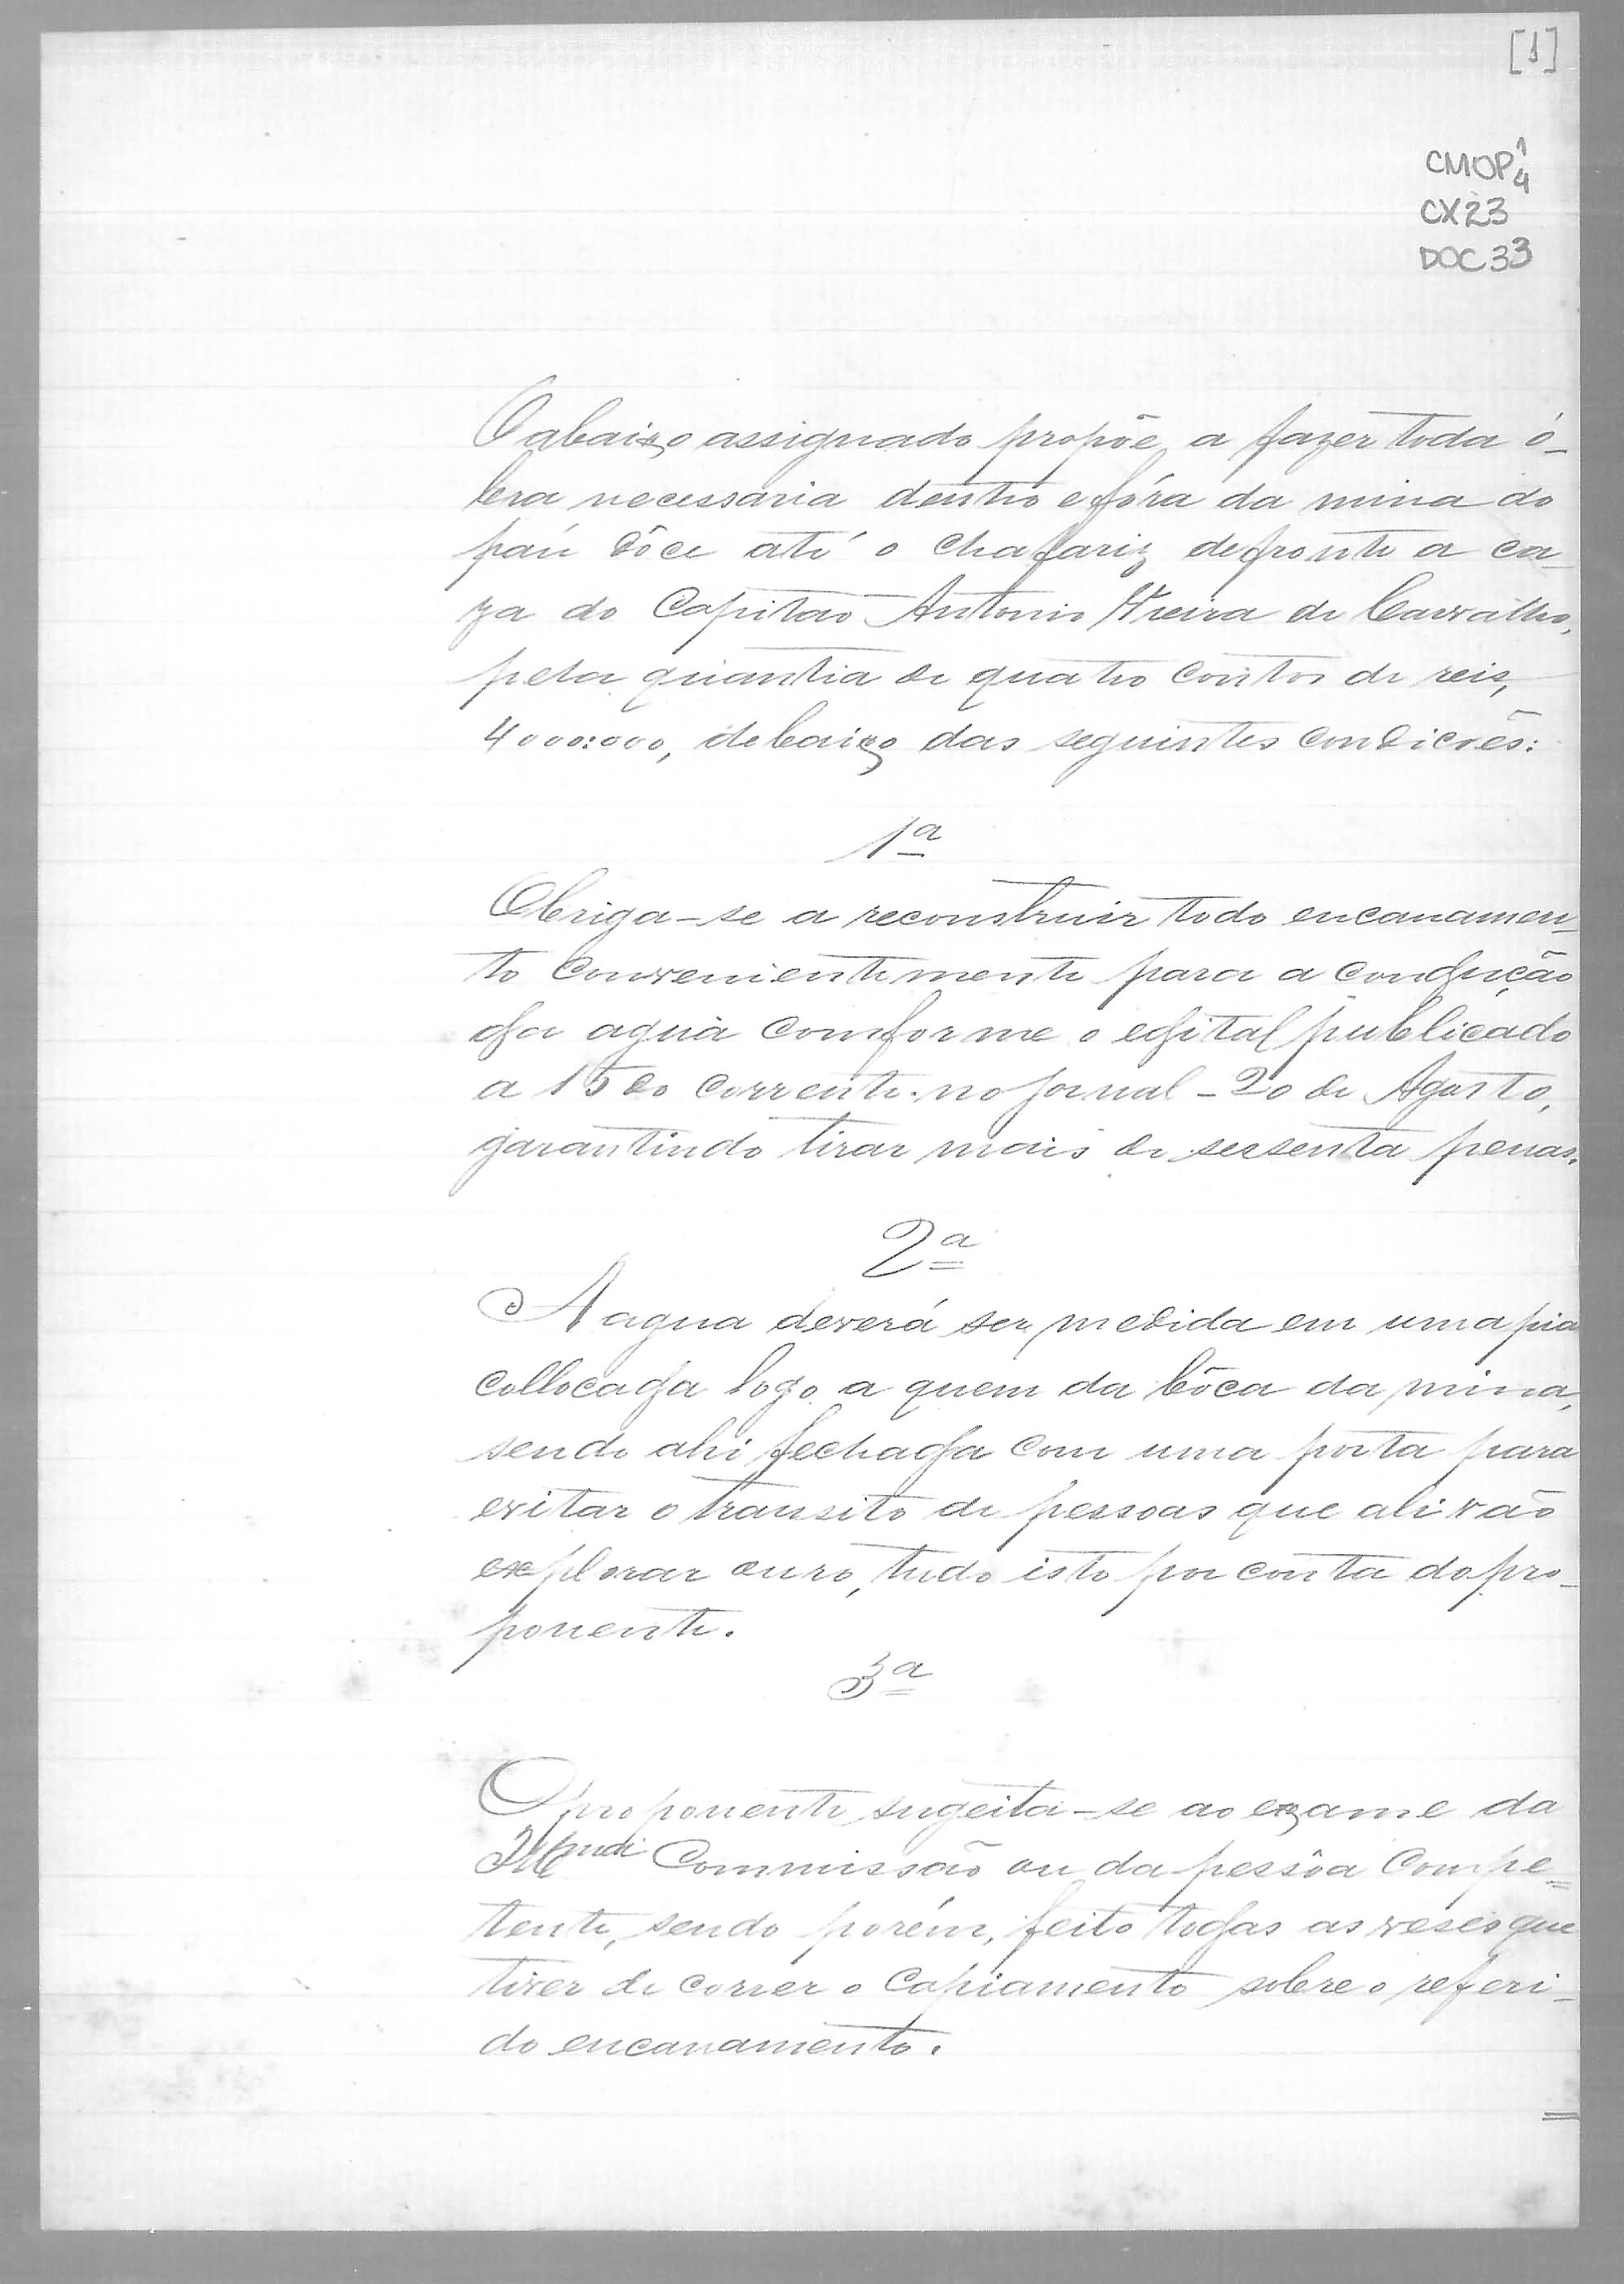 [1]
CMOP 1/4
CX23
DOC 33
O abaixo assignado propõe a fazer toda ó-
bra necessaria dentro e fóra da mina do
páu dôce até o chafariz defronte a ca-
za do Capitão Antonio Vieira de Carvalho,
pela quantia de quatro contos de reis,
4000:000, debaixo das seguintes condicões:
1ª
Obriga-se a reconstruir todo encanamen-
to convenientemente para a condução
da agua comforme o edital publicado
a 15 do corrente no jornal - 20 de Agosto,
garantindo tirar mais de sessenta penas.
2ª
A agua deverá ser medida em uma pia
collocada logo a quem da bôca da mina,
sendo ahi fechada com uma porta para
evitar o transito de pessoas que ali vão
explorar ouro, tudo isto por conta do pro-
ponente.
3ª
O proponente sugeita-se ao exame da
Commissão ou da pessôa compe-
tente, sendo porém, feito todas as veses que
tiver de correr o capiamento sobre o referi-
do encanamento.